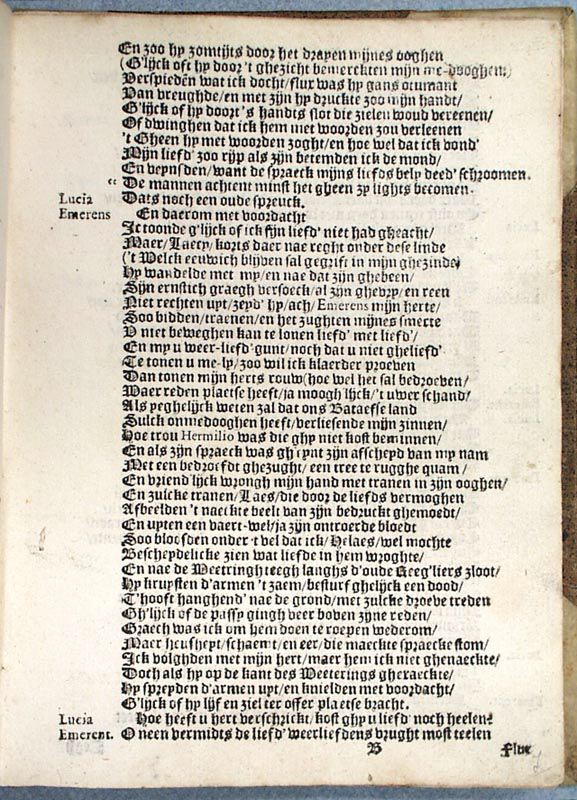 En zoo hy zomtijts door het drayen mijnes ooghen
(G'lijck oft hy door 't ghezicht bemerckten mijn me-dooghen)
Verspieden wat ick docht/ flux was hy gans
Van vreughde/ en met zijn hy druckte zoo mijn handt/
G'lijck of hy doort's handts slot die zielen woud vereenen/
Of dwinghen dat ick hem met woorden zou verleenen
't Gheen hy met woorden zoght/ en hoe wel dat ick vond'
Mijn liefd' zoo rijp als zijn betemden ick de mond/
En veynsden/ want de spraeck mijns liefds bely deed' schroomen.
“ De mannen achtent minst het gheen zy lights becomen.
Lucia Dats noch een oude spreuck.
Emerens En daerom met voordacht
Ic toonde g'lijck of ick sijn liefd' niet had gheacht/
Maer/ Laecy/ korts daer nae reght onder dese linde
('t Welck eeuwich blijven sal gegrift in mijn ghezinde)
Hy wandelde met my/ en nae dat zijn ghebeen/
Sijn ernstich graegh versoeck/ al zijn ghevry/ en reen
Niet rechten uyt/ zeyd' hy/ ach/ Emerens mijn herte/
Soo bidden/ traenen/ en het zughten mijnes smerte
V niet beweghen kan te lonen liefd' met liefd'/
En my u weer-liefd' gunt/ noch dat u niet gheliefd'
Te tonen u me-ly/ zoo wil ick klaerder proeven
Dan tonen mijn herts rouw (hoe wel het sal bedroeven/
Waer reden plaetse heeft/ ja mooghlijck/ 't uwer schand/
Als yeghelijck weten zal dat ons Bataefse land
Sulck onmedooghen heeft/ verliesende mijn zinnen/
Hoe trou Hermilio was die ghy niet kost beminnen/
En als zijn spraeck was gh'eynt zijn afscheyd van my nam
Met een bedroefdt ghezught/ een tree te rugghe quam/
En vriendlijck wrongh mijn hand met tranen in zijn ooghen/
En zulcke tranen/ Laes/ die door de liefds vermoghen
Afbeelden 't naeckte beelt van zijn bedruckt ghemoedt/
En uyten een vaert-wel/ ja zijn ontroerde bloedt
Soo bloosden onder 't vel dat ick/ Helaes/ wel mochte
Bescheydelicke zien wat liefde in hem wroghte/
En nae de Weetringh teegh langhs d'oude Reeg'liers zloot/
Hy kruysten d'armen 't zaem/ besturf ghelijck een dood/
T'hooft hanghend' nae de grond/ met zulcke droeve treden
Gh'lijck of de passy gingh veer boven zijne reden/
Graech was ick om hem doen te roepen wederom/
Maer heusheyt/ schaemt/ en eer/ die maeckte spraecke stom/
Ick volghden met mijn hert/ maer hem ick niet ghenaeckte/
Doch als hy op de kant des Weeterings gheraeckte/
Hy spreyden d'armen uyt/ en knielden met voordacht/
G'lijck of hy lijf en ziel ter offer plaetse bracht.
Lucia Hoe heeft u hert verschrickt/ kost ghy u liefd' noch heelen?
Emerent. O neen vermidts de liefd' weerliefdens vrught most teelen
B Flux